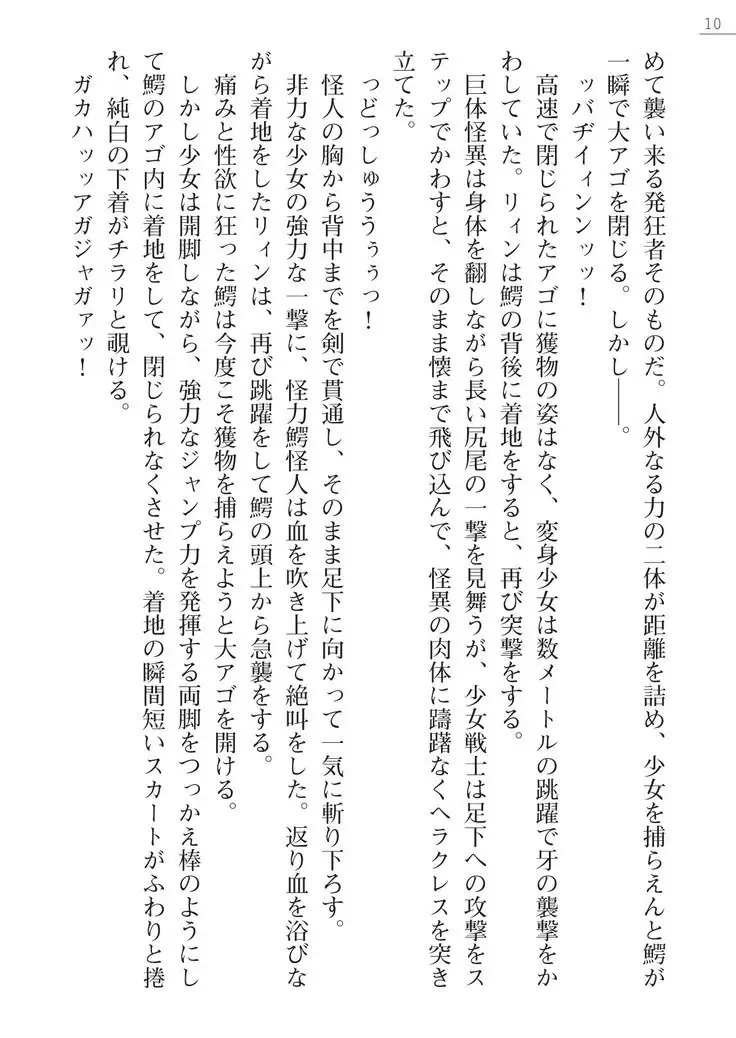 10
めて襲い来る発狂者そのものだ。人外なる力の二体が距離を詰め、少女を捕らえんと鰐が
一瞬で大アゴを閉じる。しかし――。
ッバヂイィンンッッ！
高速で閉じられたアゴに獲物の姿はなく、変身少女は数メートルの跳躍で牙の襲撃をか
わしていた。リィンは鰐の背後に着地をすると、再び突撃をする。
巨体怪異は身体を翻しながら長い尻尾の一撃を見舞うが、少女戦士は足下への攻撃をス
テップでかわすと、そのまま懐まで飛び込んで、怪異の肉体に躊躇なくヘラクレスを突き
立てた。
っどっしゅううぅぅっ！
怪人の胸から背中までを剣で貫通し、そのまま足下に向かって一気に斬り下ろす。
非力な少女の強力な一撃に、怪力鰐怪人は血を吹き上げて絶叫をした。返り血を浴びな
がら着地をしたリィンは、再び跳躍をして鰐の頭上から急襲をする。
痛みと性欲に狂った鰐は今度こそ獲物を捕らえようと大アゴを開ける。
しかし少女は開脚しながら、強力なジャンプ力を発揮する両脚をつっかえ棒のようにし
て鰐のアゴ内に着地をして、閉じられなくさせた。着地の瞬間短いスカートがふわりと捲
れ、純白の下着がチラリと覗ける。
ガカハッッアガジャガァッ！